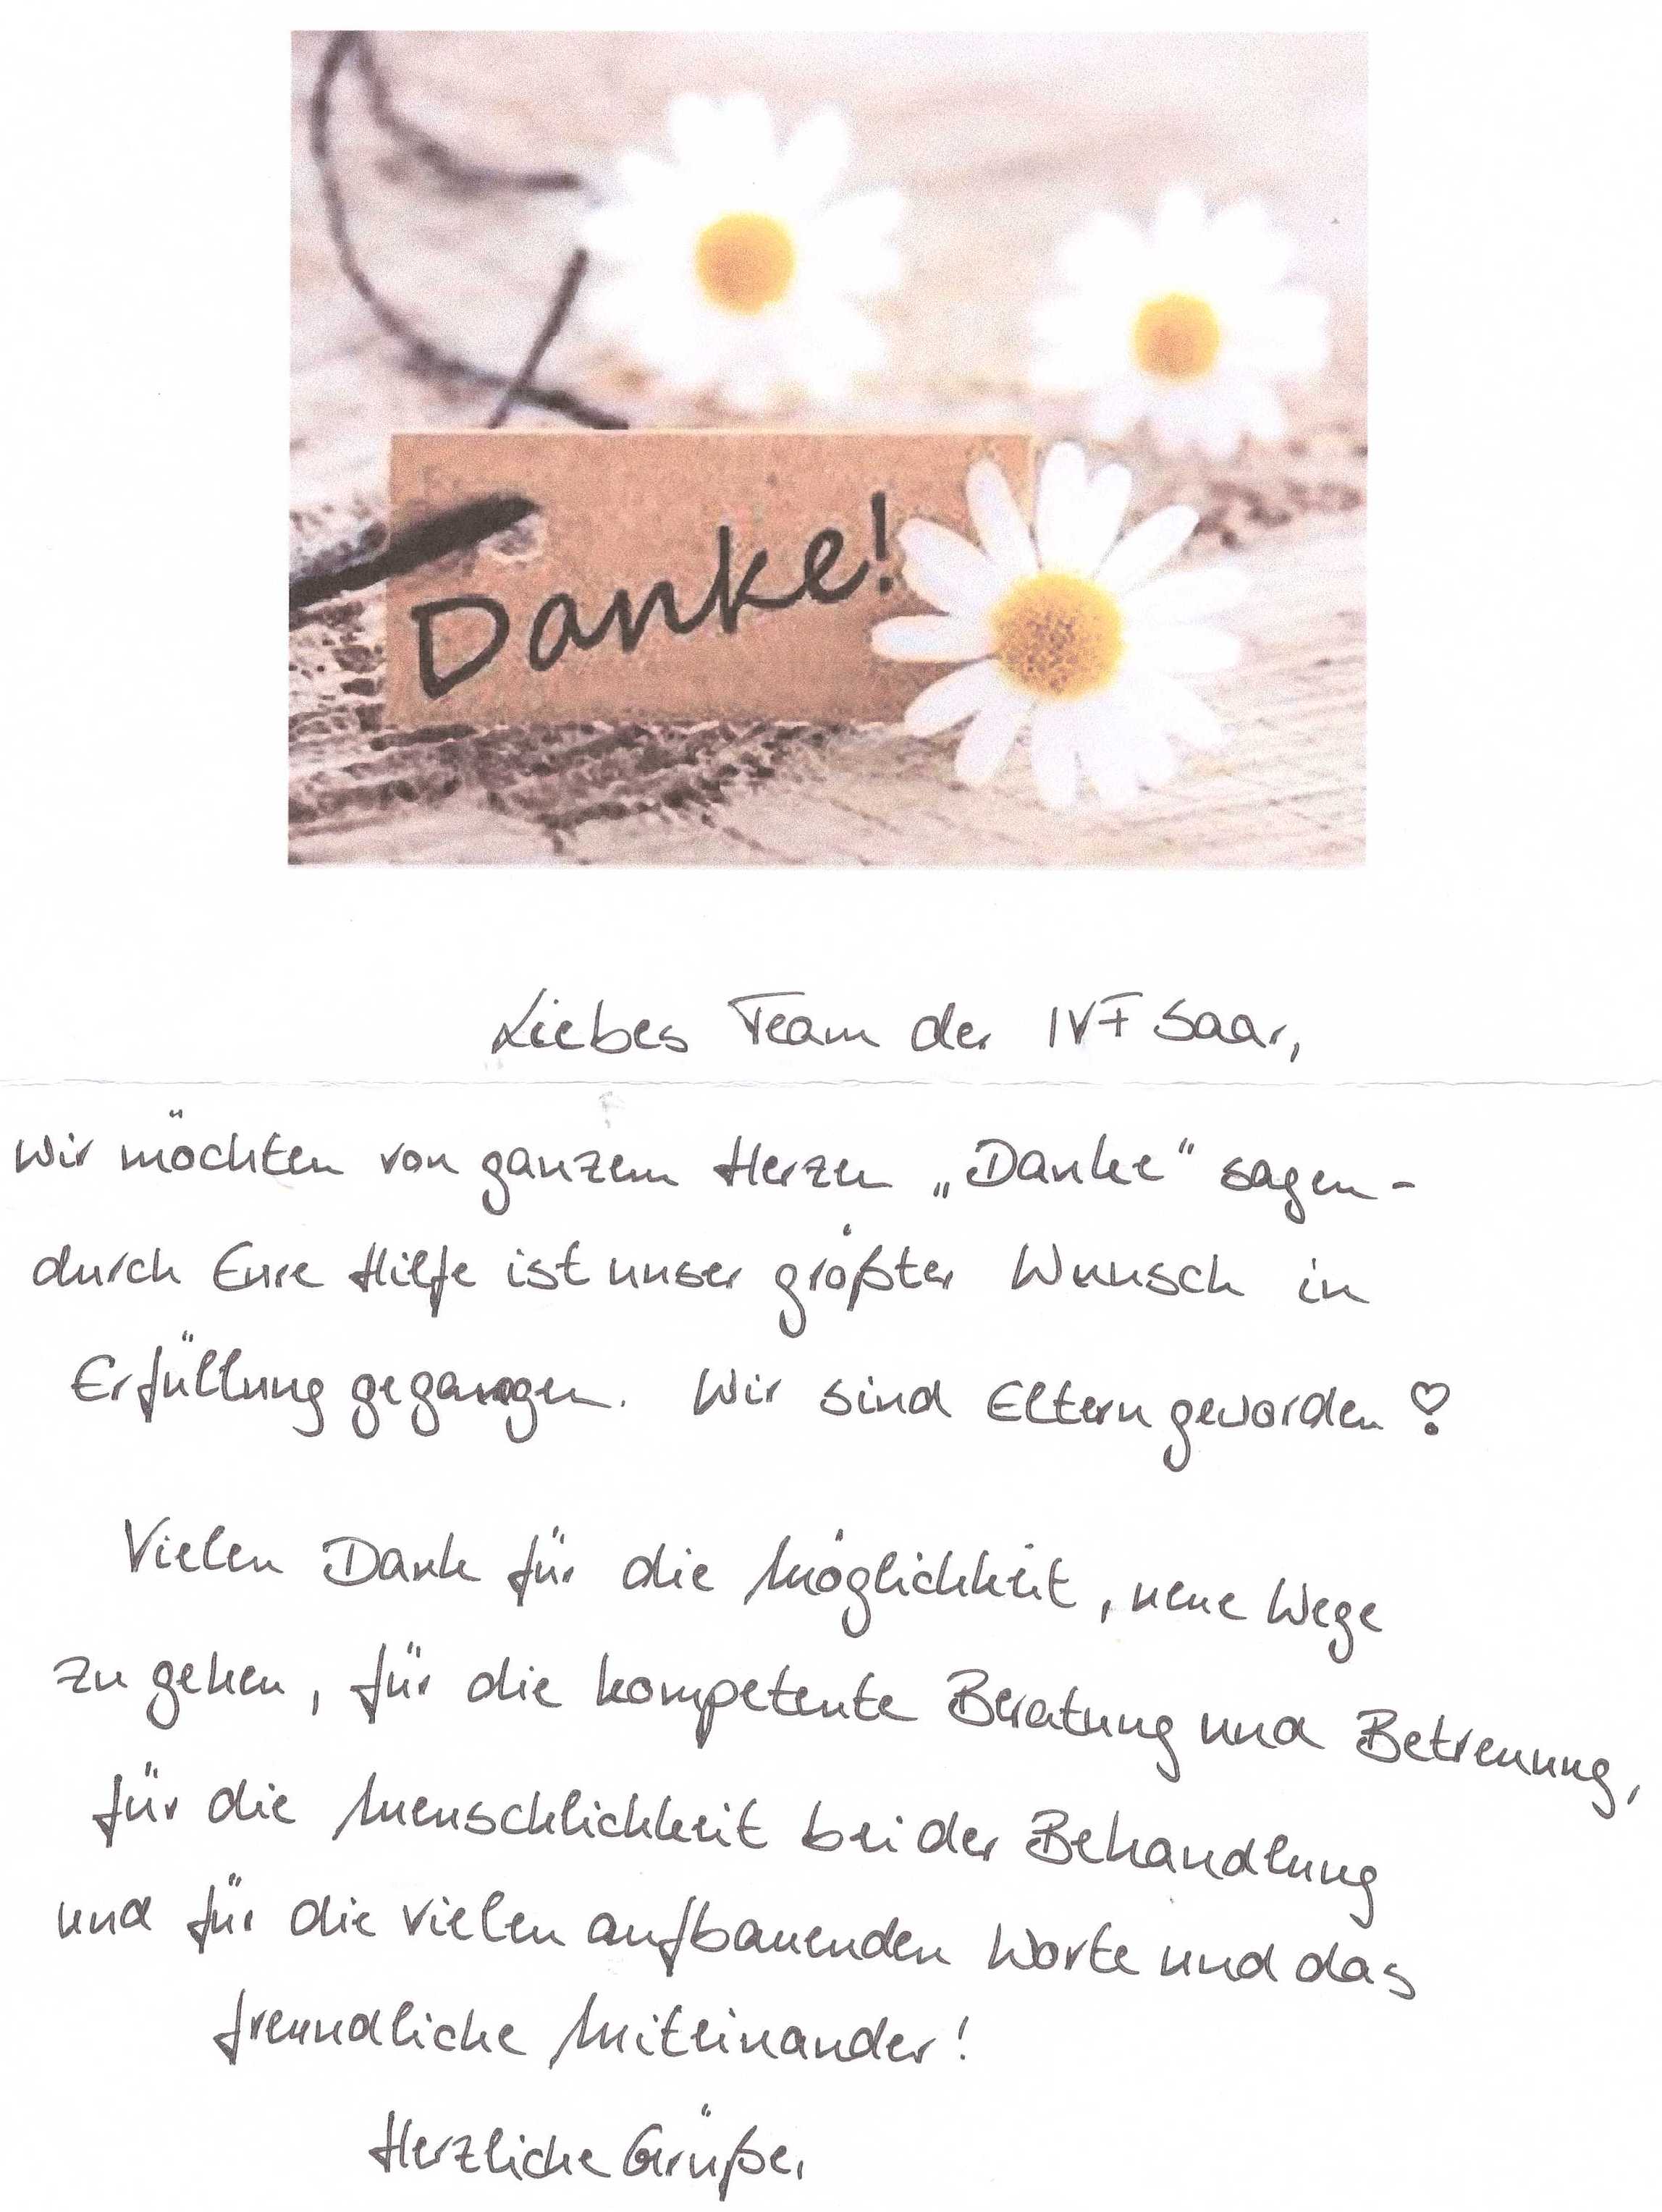 Danke!
Liebes Team der IVF Saar,
Wir möchten von ganzem Herzen „Danke“ sagen -
durch Eure Hilfe ist unser größter Wunsch in
Erfüllung gegangen. Wir sind Eltern geworden !
Vielen Dank für die Möglichkeit, neue Wege
zu gehen, für die kompetente Beratung und Betreuung,
für die Menschlichkeit bei der Behandlung
und für die vielen aufbauenden Worte und das
freundliche Miteinander!
Herzliche Grüße,